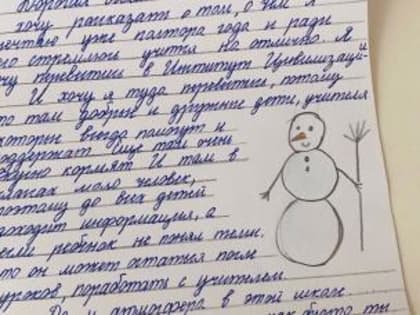 хочу рассказать о том, о чём я
мечтаю уже полтора года и ради
чего стремлюсь учится на отлично. Я
хочу перевестись в Институт Цивилизаций
И хочу я туда перевестись, потому
что там добрые и дружные дети, учителя
которые всегда помогут и
поддержат еще там очень
вкусно кормят И там в
классах мало человек,
поэтому до всех детей
доходит информация, а
если ребёнок не понял темы.
то он может остаться после
уроков, поработать с учителем.
Да и атмосфера в этой школе